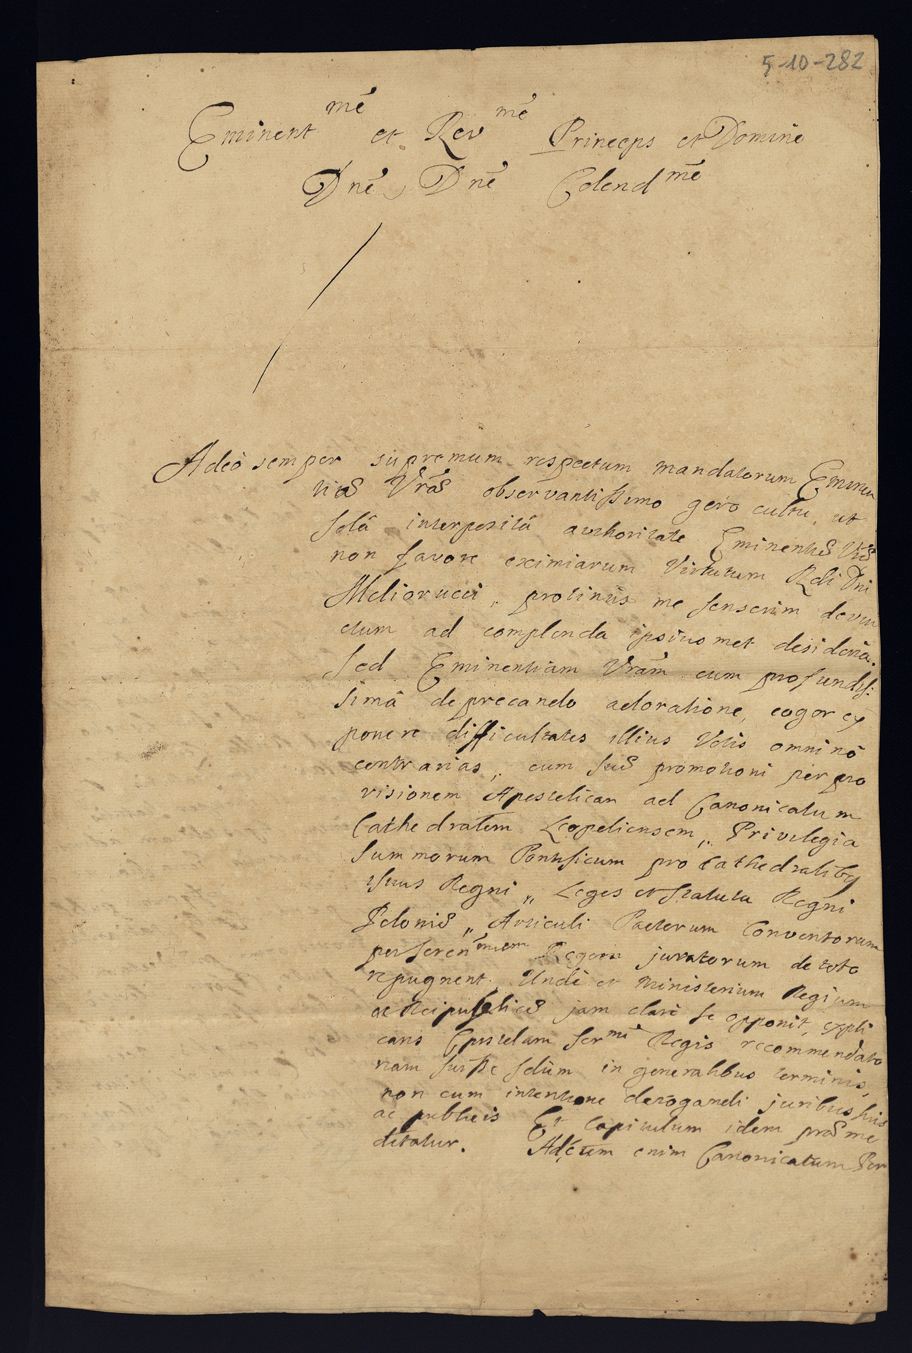 5-10-282
Eminent mẽ et Rev mẽ Princeps et Domine
Dnẽ, Dnẽ Colend mẽ
Adeò semper supremum respectum mandatorum Eminen
tiæ Vræ observantissimo gero cultu, ut
solâ interpositâ authoritate Eminentiæ Vræ
non favore eximiarum Virtutum Rdi Dni
Meliorucci, protinùs me senserim devin
ctum ad complenda ipsiusmet desideria.
Sed Eminentiam Vram cum profundis:
simâ deprecando adoratione, cogor ex
ponere difficultates illius Votis omninò
contrarias, cum suæ promotioni per pro
visionem Apostolicam ad Canonicatum
Cathedralem Leopoliensem, Privilegia
Summorum Pontificum pro Cathedralibus
istius Regni, Leges et statuta Regni
Poloniæ, Articuli Pactorum Conventorum
per Seren mum Regem juratorum de toto
repugnent. Undè et Ministerium Regium
ac Reipublicæ jam clarè se opponit, expli
cans Epistolam Ser mi Regis recommendato
riam fuisse solùm in generalibus terminis,
non cum intentione derogandi juribus suis
ac publicis Et Capitulum idem præ me
ditatur. Ad enim Canonicatum Per